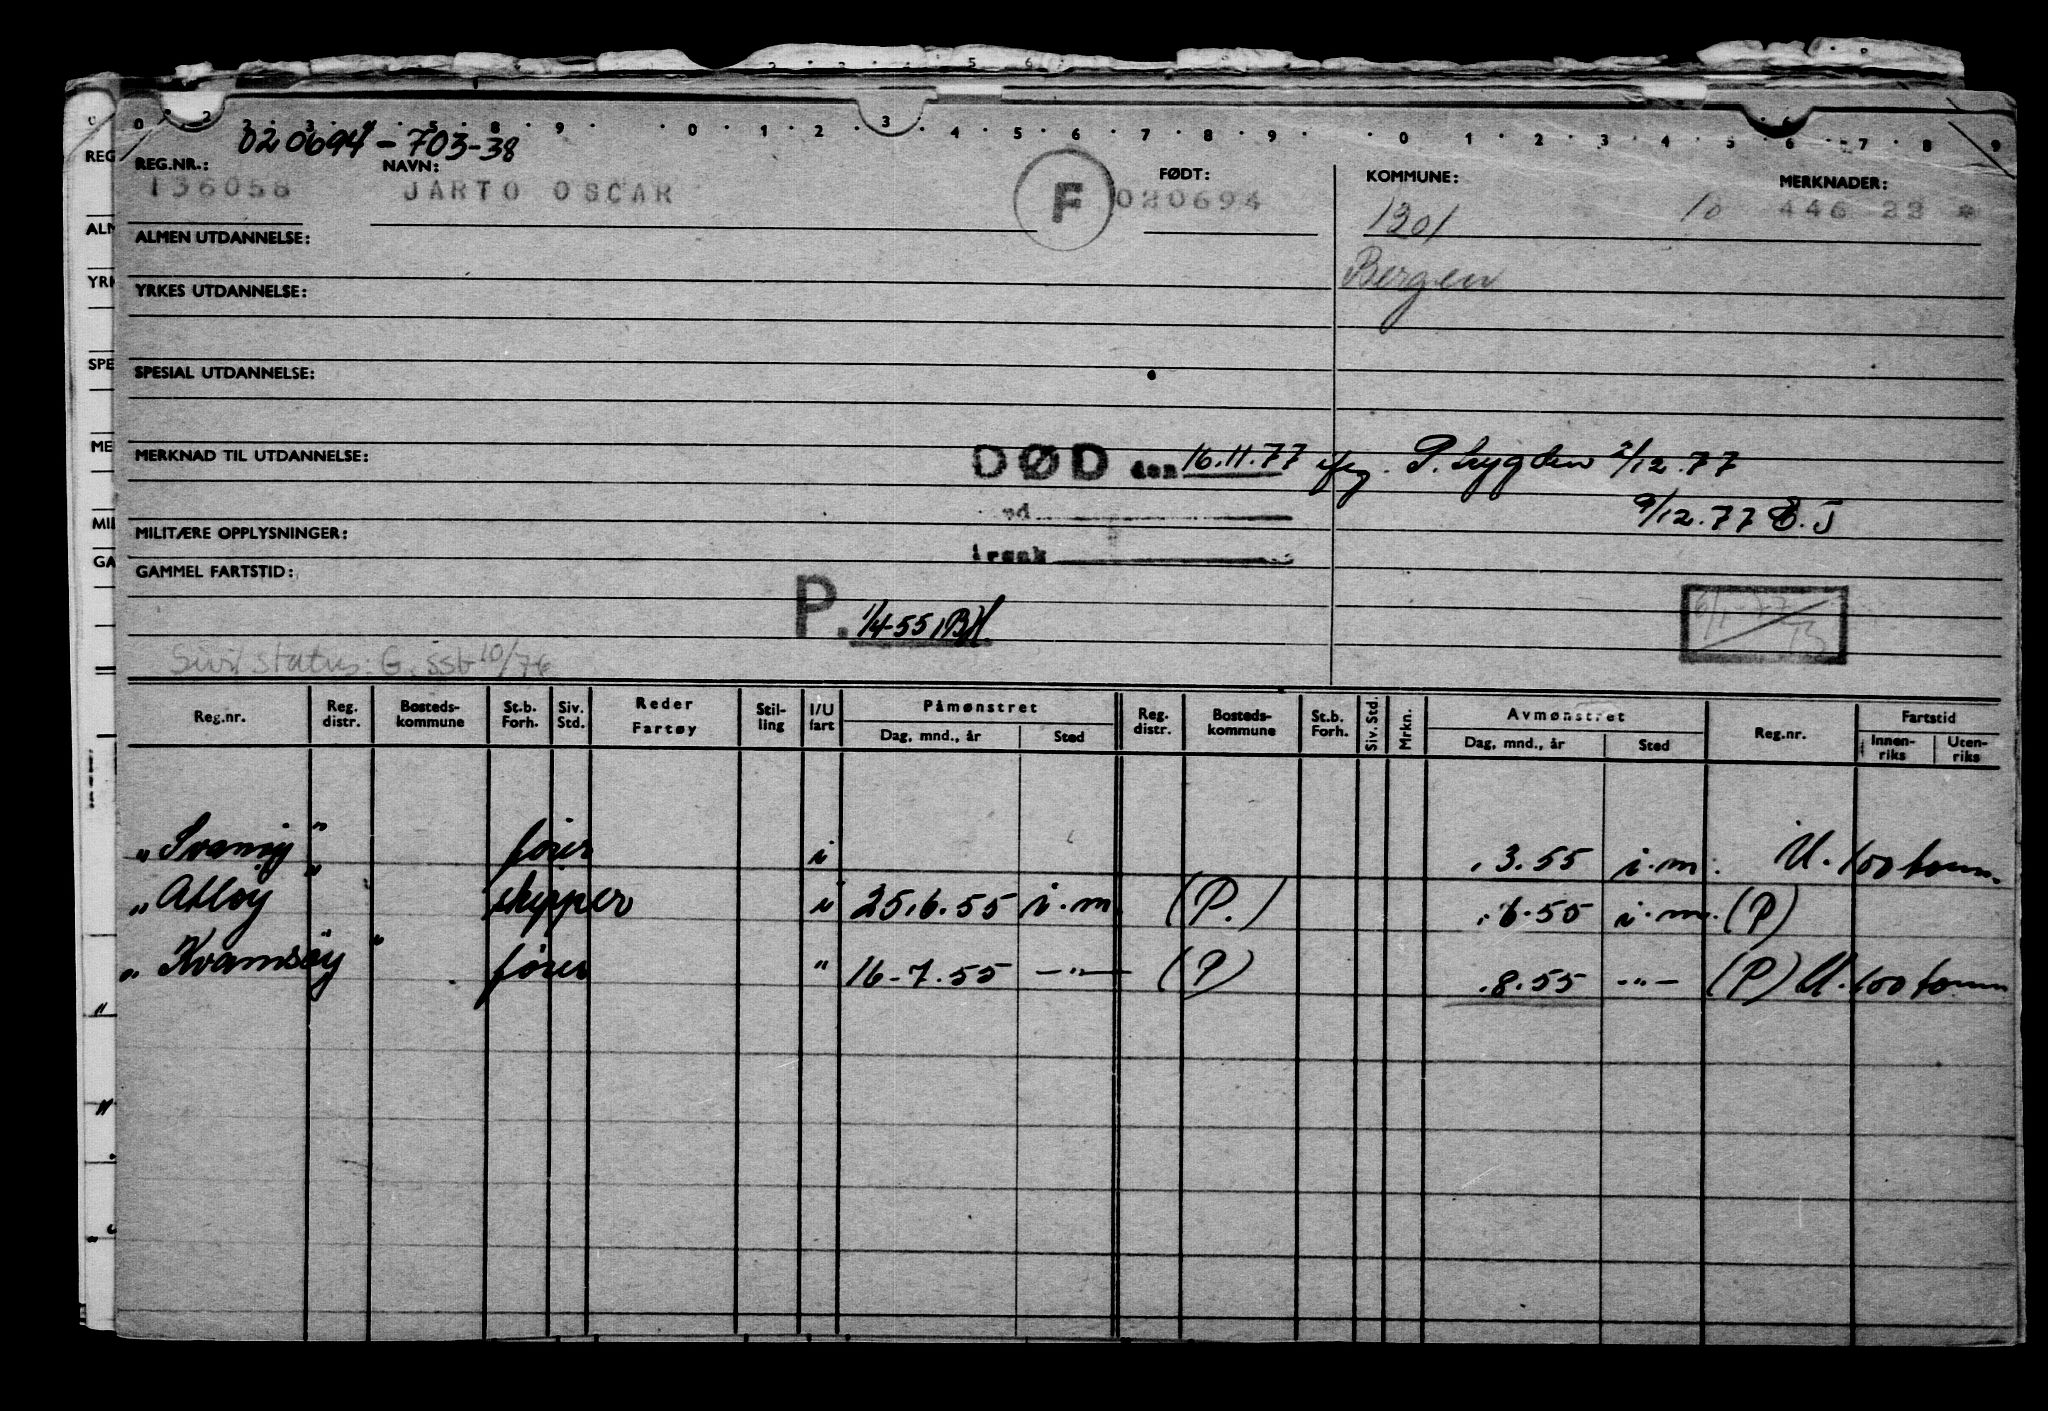 020694-703-38
REG.NR.: NAVN: FØDT: KOMMUNE: MERKNADER:
136058 JARTO OSCAR F 020694 1301 10 446 22 *
ALMEN UTDANNELSE:
Bergen
YRKES UTDANNELSE:
SPESIAL UTDANNELSE:
MERKNAD TIL UTDANNELSE: DØD den 16.11.77 2/12.77
ved 9/12.77 E.J
MILITÆRE OPPLYSNINGER:
i reg.nk
GAMMEL FARTSTID:
P. 1/4-55 BH 6/1-77 TB
Sivil status: G. ssb 10/76
Reg.nr. Reg. distr. Bosteds-kommune St.b. Forh. Siv. Std. Reder Fartøy Stil-ling I/U fart Påmønstret Dag, mnd., år Sted Reg. distr. Bosteds-kommune St.b. Forh. Siv. Std. Mrkn. Avmønstret Dag, mnd., år Sted Reg.nr. Fartstid Innen-riks Uten-riks
"Svanøy" fører i .3.55 i.m. U. 100 tonn.
"Atløy" skipper " 25.6.55 i.m. (P.) .6.55 i.m. (P)
"Kvamsøy" fører " 16-7.55 -"- (P) .8.55 -"- (P) U. 100 tonn